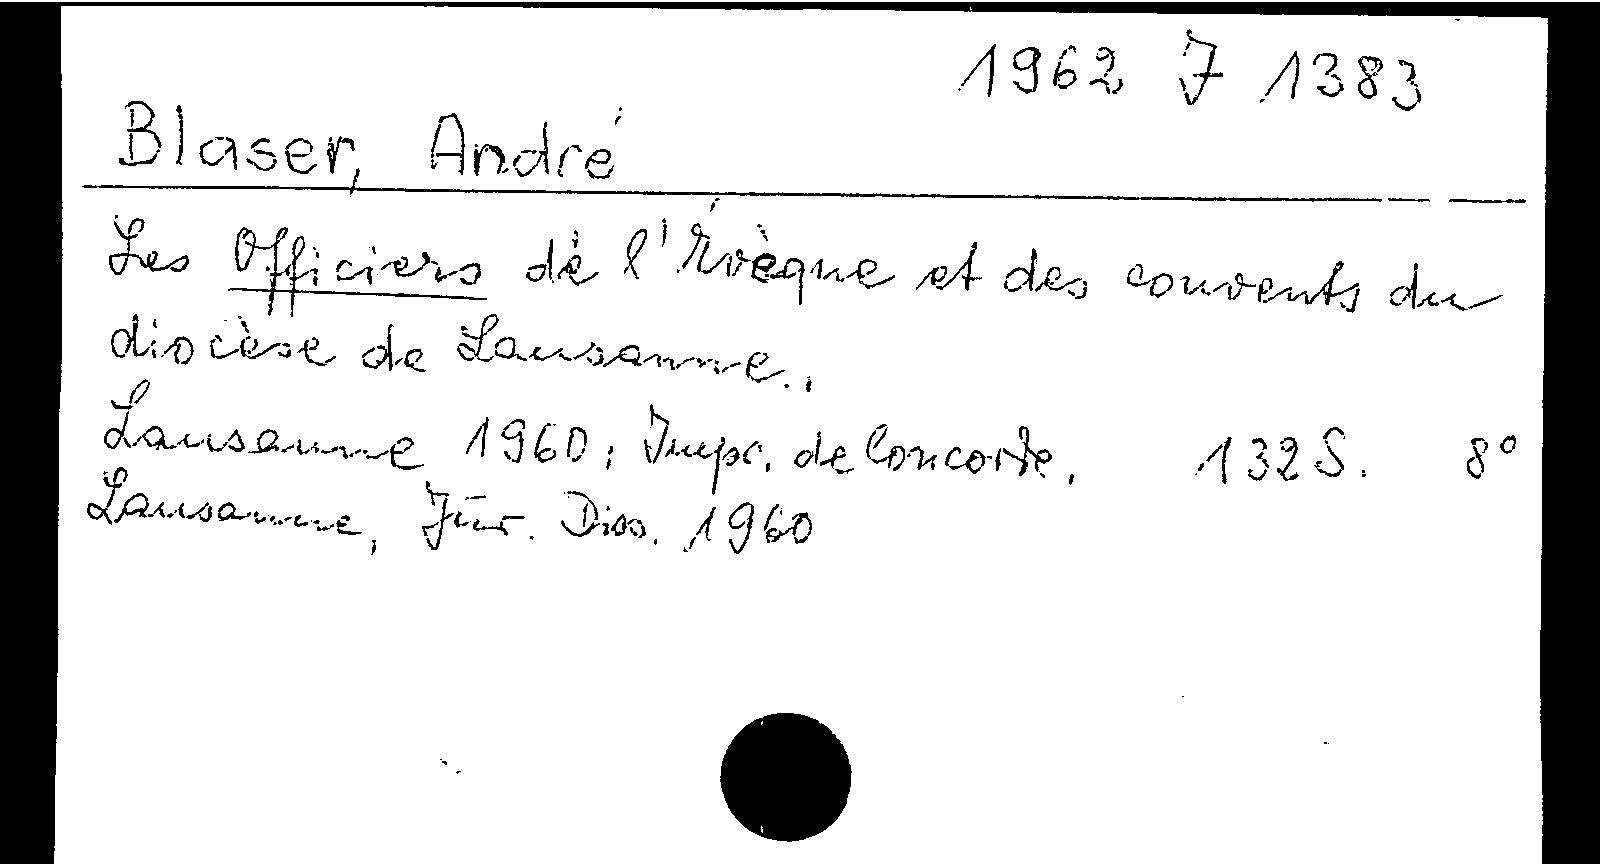 1962 J 1383
Blaser, André
Les Officiers de l'Évèque et des couvents du
diocèse de Lausanne.
Lausanne 1960: Impr. de Concorde. 132 S. 8°
Lausanne, Jur. Diss. 1960